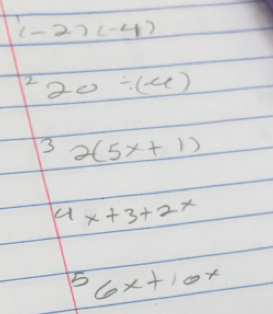 1 (-2)(-4)
2 20 ÷ (4)
3 2(5x + 1)
4 x + 3 + 2x
5 6x + 10x